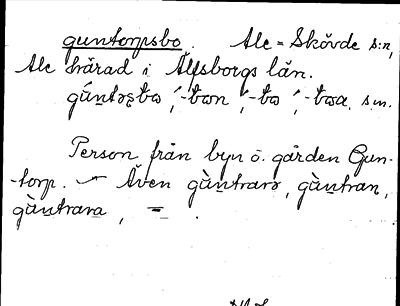 guntorpsbo. Ale=Skövde s:n,
Ale härad i Älfsborgs län.
gu̇ntəʂbo, -bon, -bo, -boa, s.m.
Person från byn o. gården Gun-
-torp. — Även gùntrarə, gùntran,
gùntrara, =.